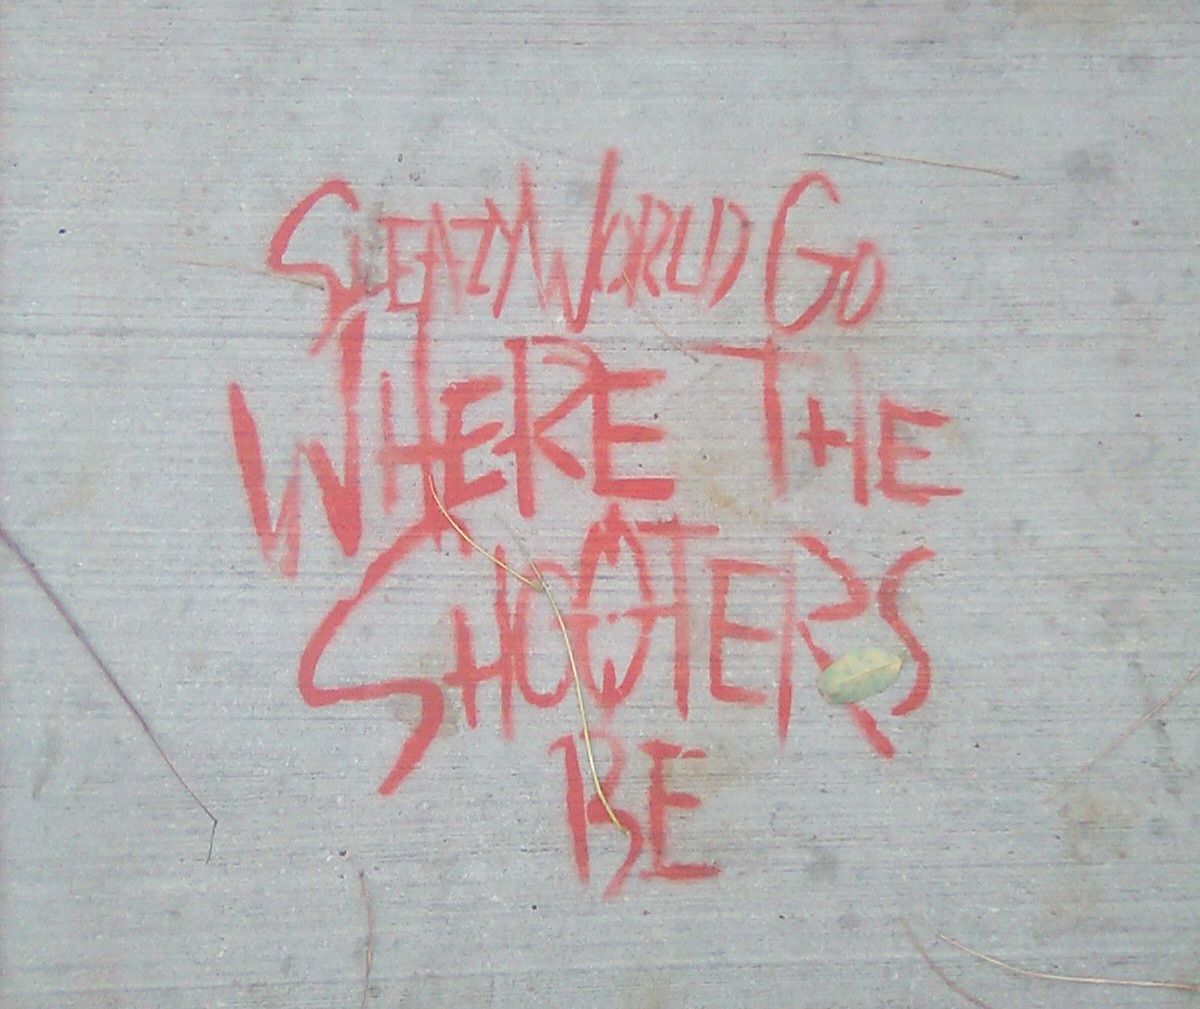 SLEAZYWORLD GO
WHERE THE
SHOOTERS
BE